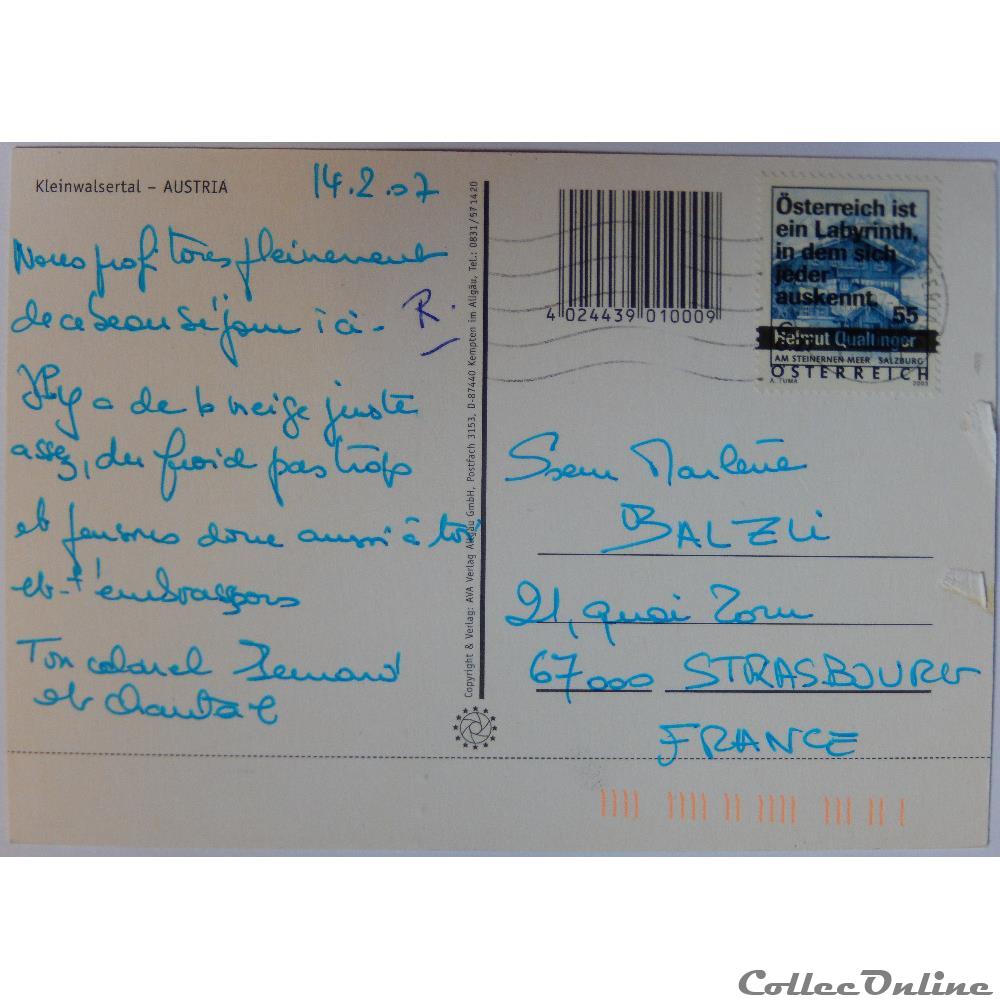 Kleinwalsertal – AUSTRIA
14.2.07
Nous profitons pleinement
de ce beau séjour ici -
R.
Il y a de la neige juste
assez, du froid pas trop
et pensons donc aussi à toi
et t'embrassons
Ton colonel Bernard
et Chantal
Copyright & Verlag: AVA Verlag Allgäu GmbH, Postfach 3153, D-87440 Kempten im Allgäu, Tel.: 0831/571420
4 024439 010009
Österreich ist
ein Labyrinth,
in dem sich
jeder
auskennt.
55
Helmut Qualtinger
AM STEINERNEN MEER SALZBURG
ÖSTERREICH
A. TUMA 2003
Soeur Marlène
BALZLI
21, quai Zorn
67000 STRASBOURG
FRANCE
CollecOnline